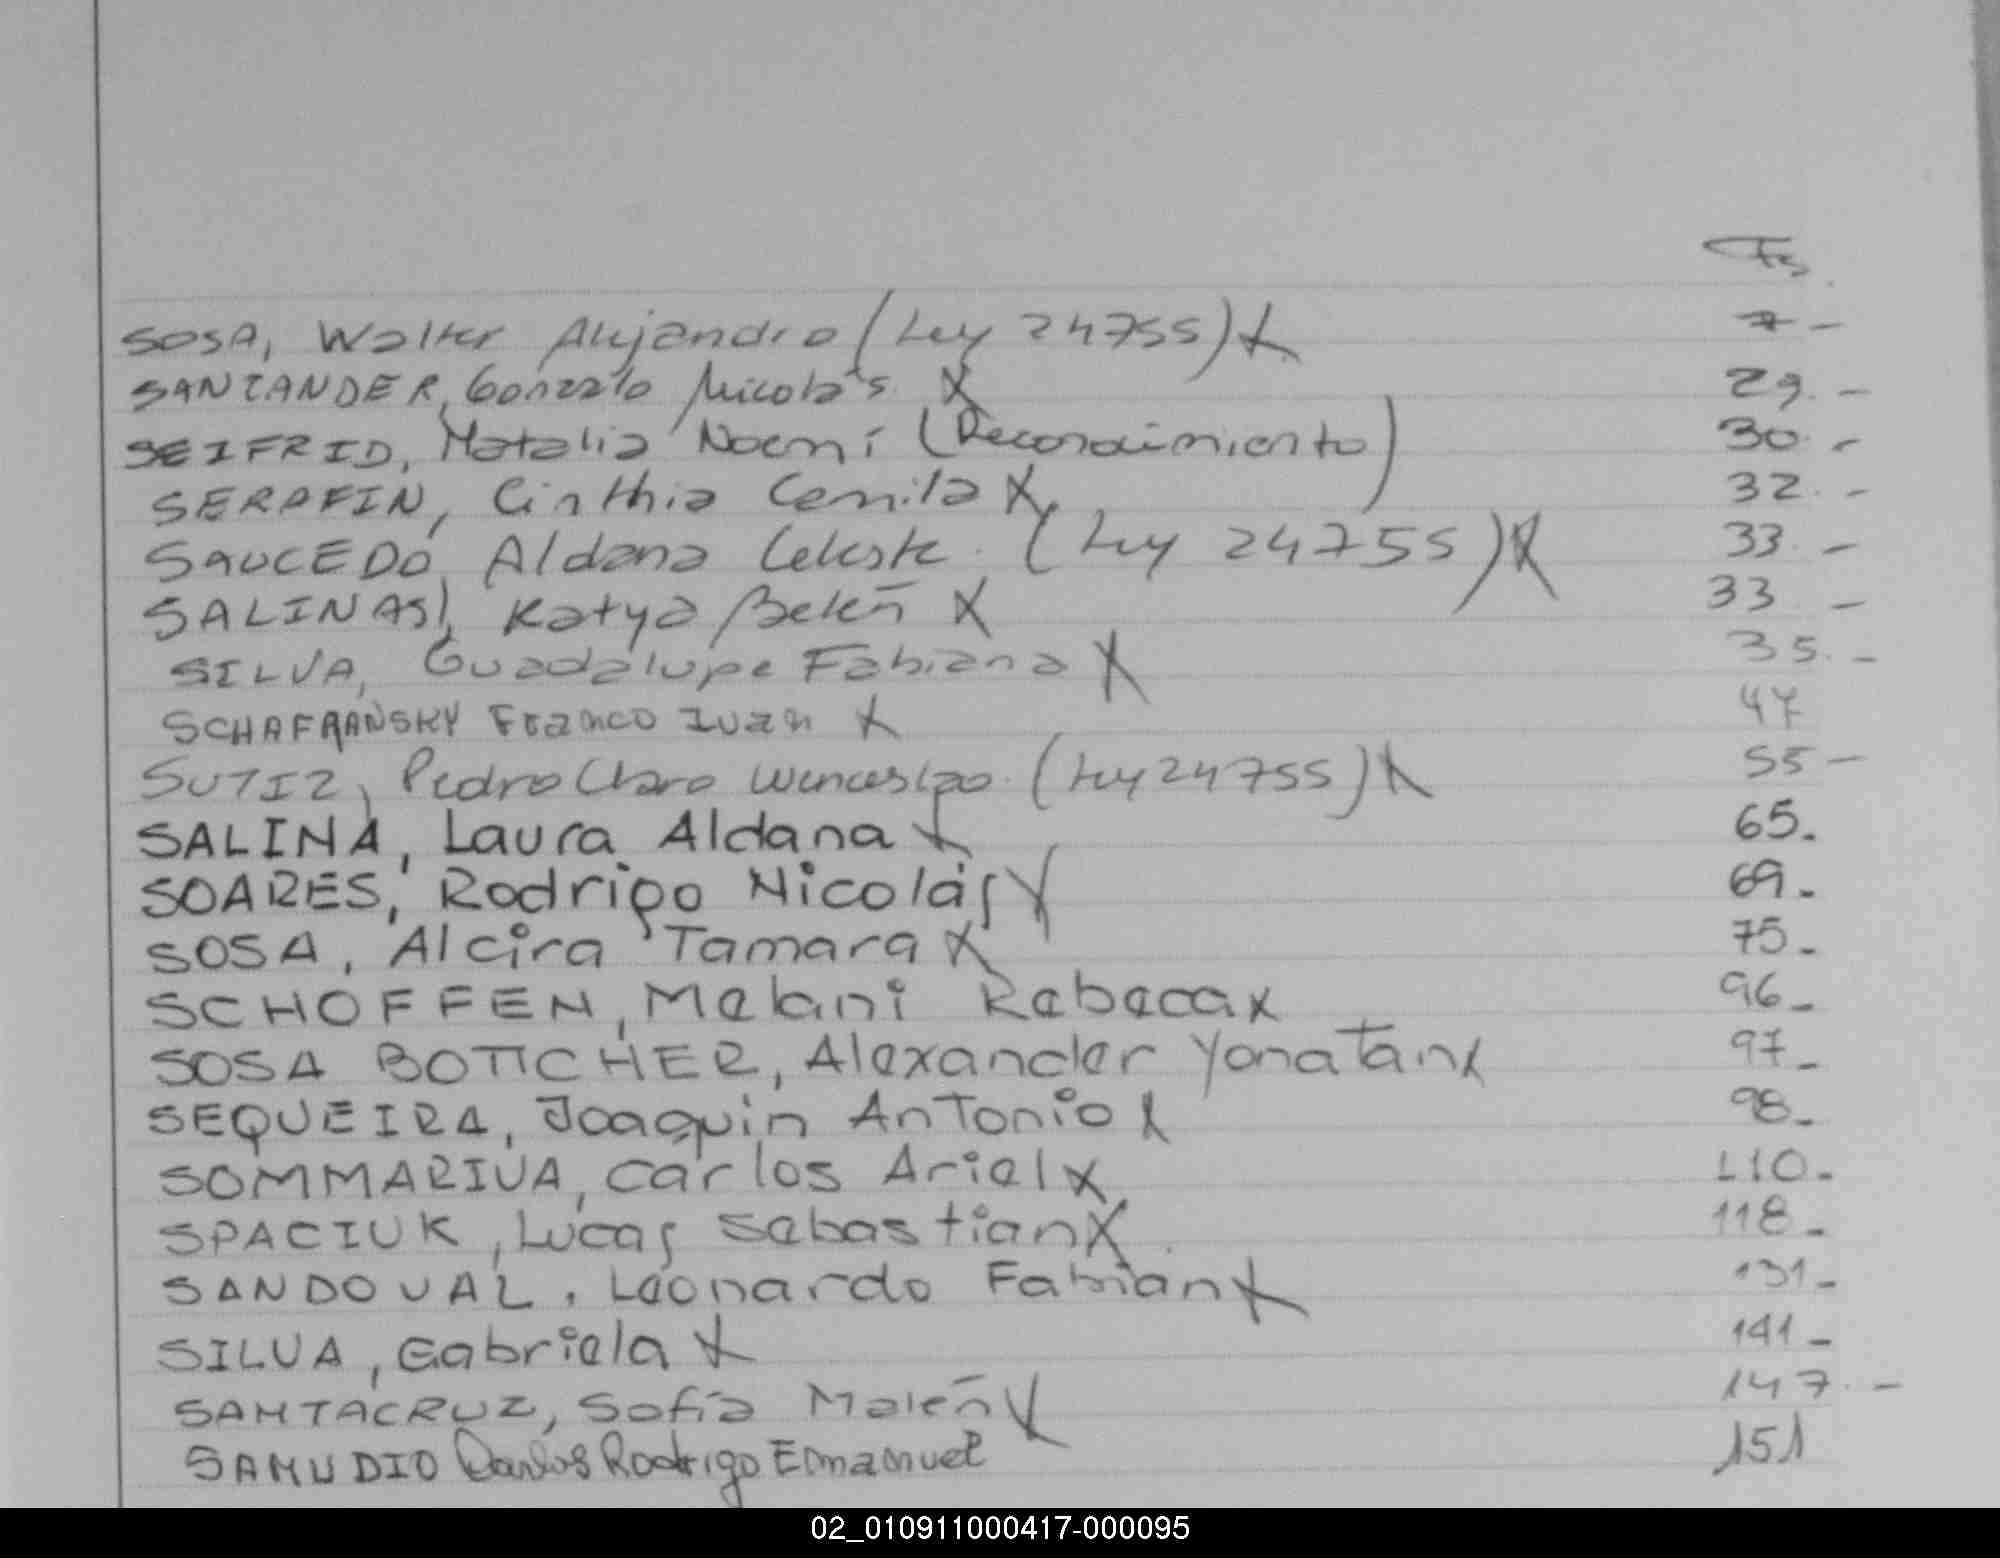 Fs
SOSA, Walter Alejandro (Ley 24755) X 7 -
SANTANDER, Gonzalo Nicolás X 29. -
SEIFRID, Natalia Noemí (Reconocimiento) 30. -
SERAFIN, Cinthia Camila X 32. -
SAUCEDO, Aldana Celeste. (Ley 24755) X 33. -
SALINAS, Katya Belén X 33 -
SILVA, Guadalupe Fabiana X 35. -
SCHAFRANSKY Franco Ivan X 47
SUTIZ, Pedro Claro Wenceslao. (Ley 24755) X 55 -
SALINA, Laura Aldana X 65.
SOARES, Rodrigo Nicolás X 69.
SOSA, Alcira Tamara X 75.
SCHOFFEN, Melani Rebeca X 96.
SOSA BOTTCHER, Alexander Yonatan X 97.
SEQUEIRA, Joaquin Antonio X 98.
SOMMARIVA, Carlos Ariel X 110.
SPACIUK, Lucas Sebastian X 118.
SANDOVAL, Leonardo Fabian X 131.
SILVA, Gabriela X 141.
SANTACRUZ, Sofía Malén X 147. -
SAMUDIO Carlos Rodrigo Emanuel 151
02_010911000417-000095